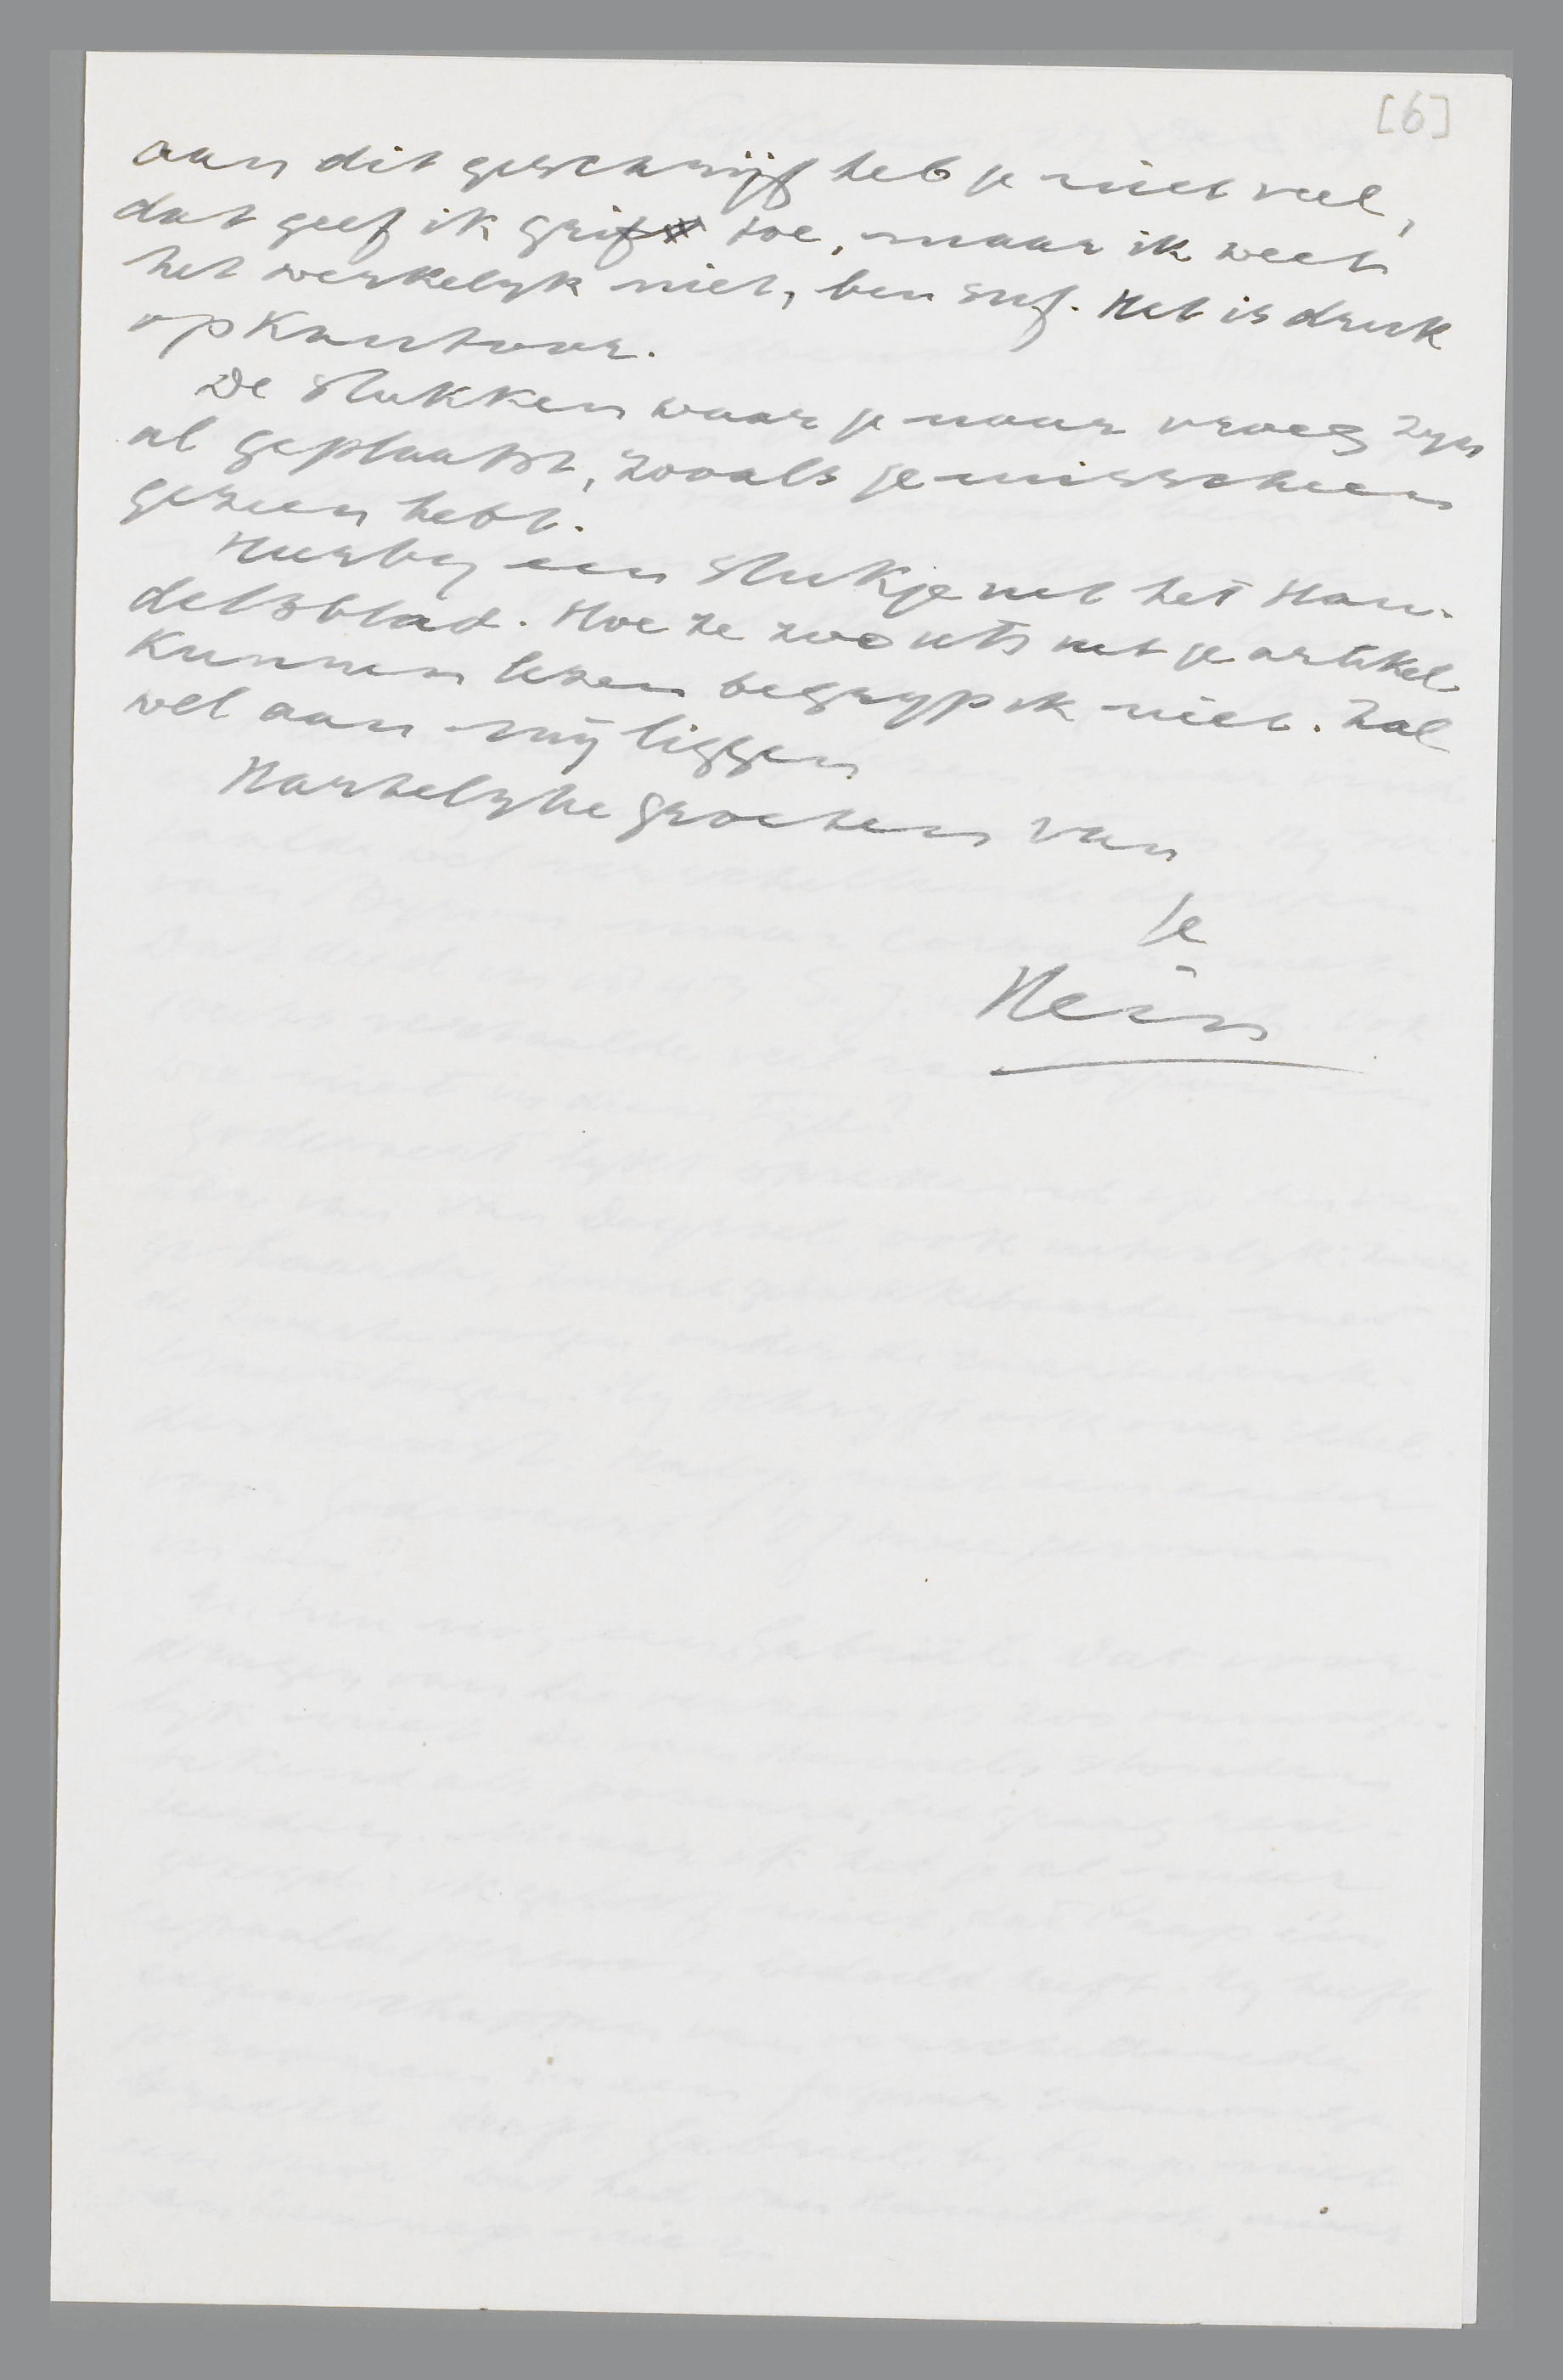 [6]
aan dit geschrijf heb je niet veel,
dat geef ik grif toe, maar ik weet
het werkelyk niet, ben suf. Het is druk
op kantoor.
De stukken waar je naar vroeg zyn
al geplaatst, zooals je misschien
gezien hebt.
Hierby een stukje uit het Han-
delsblad. Hoe ze zoo iets uit je artikel
kunnen lezen begryp ik niet. Zal
wel aan mij liggen
Hartelyke groeten van
je
Hein